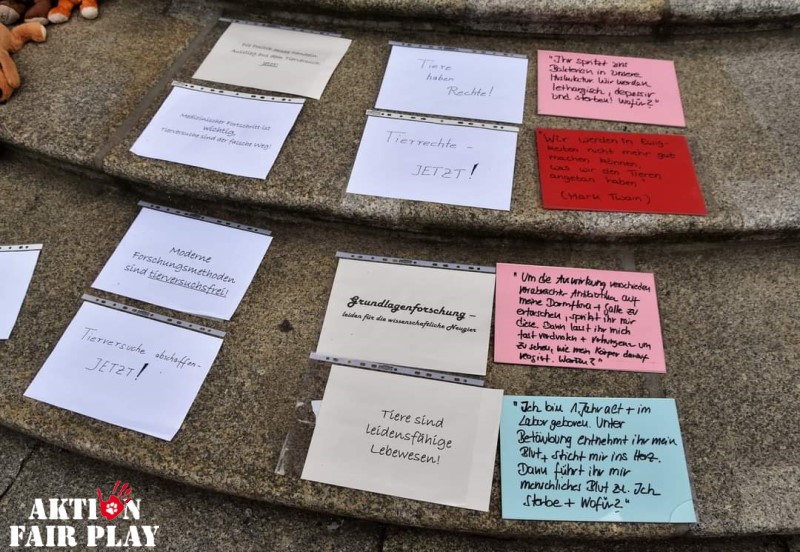 Tiere
haben
Rechte!
"Ihr spritzt uns
Bakterien in unsere
Muskulatur. Wir werden
lethargisch, depressiv
und sterben! Wofür?"
Medizinischer Fortschritt ist
wichtig,
Tierversuche sind der falsche Weg!
Tierrechte -
JETZT!
"Wir werden in Ewig-
keiten nicht mehr gut
machen können,
was wir den Tieren
angetan haben"
(Mark Twain)
Moderne
Forschungsmethoden
sind tierversuchsfrei!
Grundlagenforschung –
leiden für die wissenschaftliche Neugier
"Um die Auswirkung verschieden
verabreichter Antibiotika auf
meine Darmflora + Galle zu
erforschen, spritzt ihr mir
diese. Dann lasst ihr mich
fast verdursten + verhungern um
zu sehen, wie mein Körper darauf
reagiert. Warum?"
Tierversuche abschaffen-
JETZT!
Tiere sind
leidensfähige
Lebewesen!
"Ich bin 1 Jahr alt + im
Labor geboren. Unter
Betäubung entnehmt ihr mein
Blut + sticht mir ins Herz.
Dann führt ihr mir
menschliches Blut zu. Ich
sterbe + Wofür?"
AKTION
FAIR PLAY